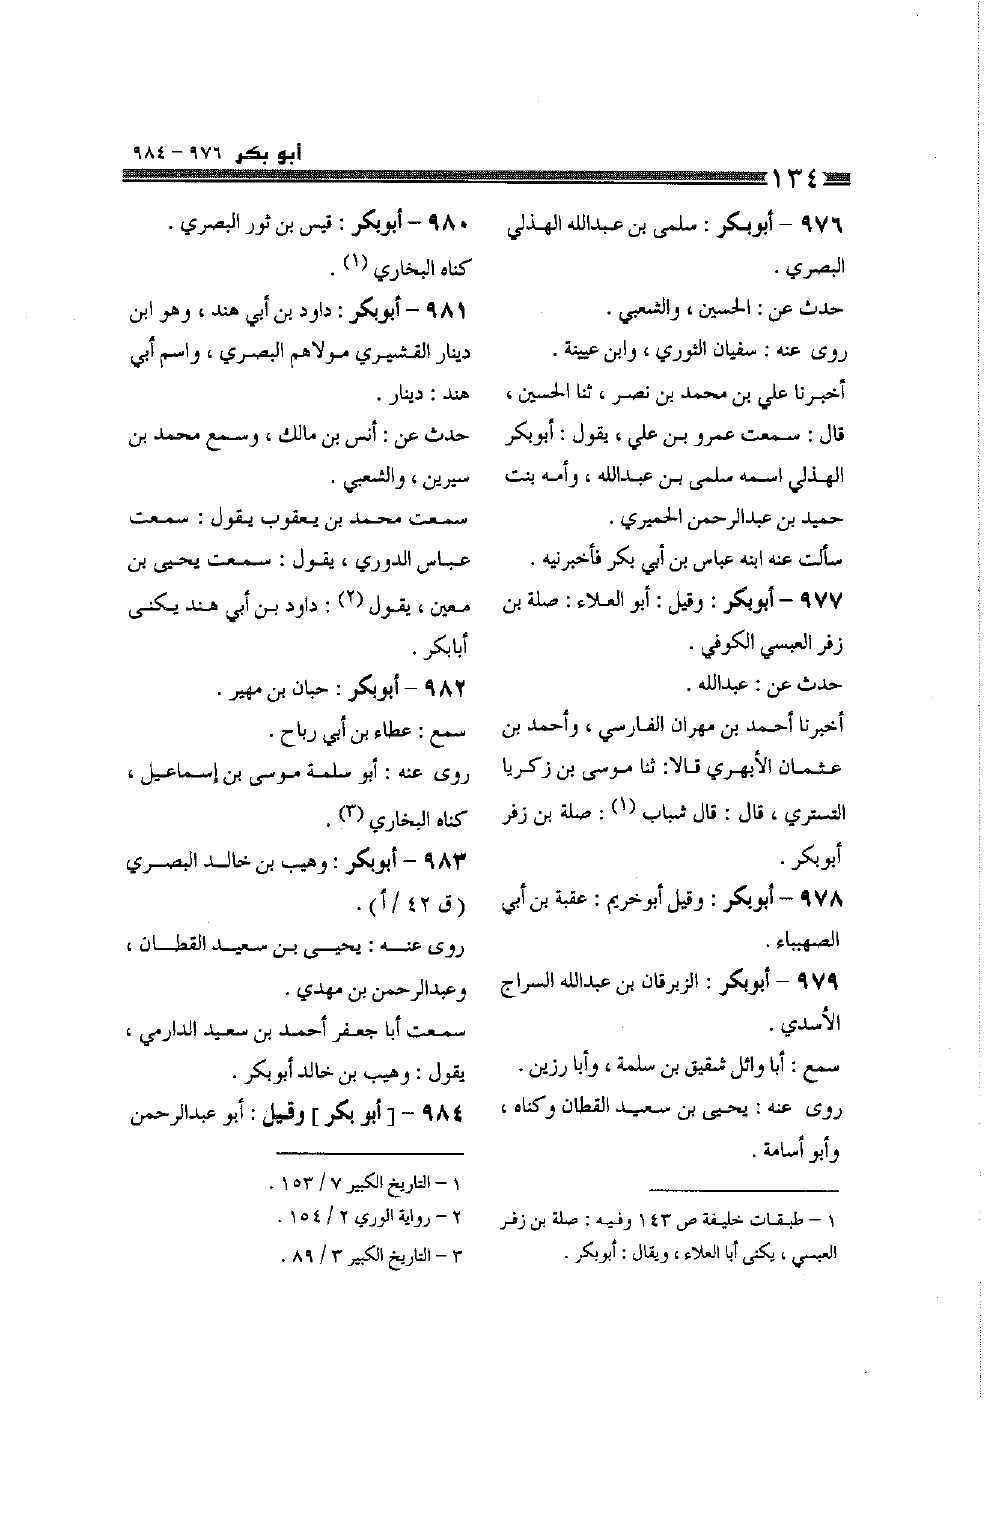 أبو بكر ٩٧٦ – ٩٨٤
١٣٤
٩٧٦ – أبوبكر : سلمى بن عبدالله الهذلي
البصري .
حدث عن : الحسين ، والشعبي .
روى عنه : سفيان الثوري ، وابن عيينة .
أخبرنا علي بن محمد بن نصر ، ثنا الحسين ،
قال : سمعت عمرو بن علي ، يقول : أبوبكر
الهذلي اسمه سلمى بن عبدالله ، وأمه بنت
حميد بن عبدالرحمن الحميري .
سألت عنه ابنه عباس بن أبي بكر فأخبرنيه .
٩٧٧ – أبوبكر : وقيل : أبو العلاء : صلة بن
زفر العبسي الكوفي .
حدث عن : عبدالله .
أخبرنا أحمد بن مهران الفارسي ، وأحمد بن
عثمان الأبهري قالا: ثنا موسى بن زكريا
التستري ، قال : قال شباب (١) : صلة بن زفر
أبوبكر .
٩٧٨ – أبوبكر : وقيل أبو خريم : عقبة بن أبي
الصهباء .
٩٧٩ – أبوبكر : الزبرقان بن عبدالله السراج
الأسدي .
سمع : أبا وائل شقيق بن سلمة ، وأبا رزين .
روى عنه : يحيى بن سعيد القطان وكناه ،
وأبو أسامة .
١ – طبقات خليفة ص ١٤٣ وفيه : صلة بن زفر
العبسي ، يكنى أبا العلاء ، ويقال : أبوبكر .
٩٨٠ – أبوبكر : قيس بن ثور البصري .
كناه البخاري (١) .
٩٨١ – أبوبكر : داود بن أبي هند ، وهو ابن
دينار القشيري مولاهم البصري ، واسم أبي
هند : دينار .
حدث عن : أنس بن مالك ، وسمع محمد بن
سيرين ، والشعبي .
سمعت محمد بن يعقوب يقول : سمعت
عباس الدوري ، يقول : سمعت يحيى بن
معين ، يقول (٢) : داود بن أبي هند يكنى
أبابكر .
٩٨٢ – أبوبكر : حبان بن مهير .
سمع : عطاء بن أبي رباح .
روى عنه : أبو سلمة موسى بن إسماعيل ،
كناه البخاري (٣) .
٩٨٣ – أبوبكر : وهيب بن خالد البصري
(ق ٤٢ /أ) .
روى عنه : يحيى بن سعيد القطان ،
وعبدالرحمن بن مهدي .
سمعت أبا جعفر أحمد بن سعيد الدارمي ،
يقول : وهيب بن خالد أبوبكر .
٩٨٤ – [ أبو بكر ] وقيل : أبو عبدالرحمن
١ – التاريخ الكبير ٧ / ١٥٣ .
٢ – رواية الوري ٢ / ١٥٤ .
٣ – التاريخ الكبير ٣ / ٨٩ .